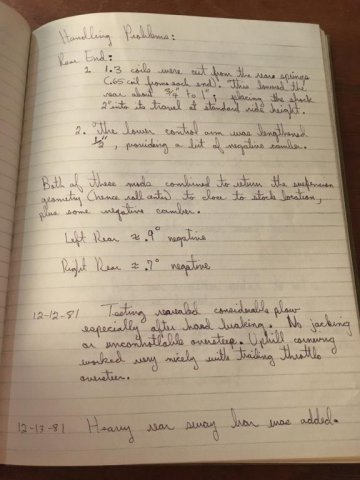 Handling Problems:
Rear End:
1. 1.3 coils were cut from the rear springs
(.65 coil from each end). This lowered the
rear about 3/4" to 1"; placing the shock
2" into its travel at standard ride height.
2. The lower control arm was lengthened
1/2", providing a bit of negative camber.
Both of these mods combined to return the suspension
geometry (hence roll center) to close to stock location,
plus some negative camber.
Left Rear ≈ .9° negative
Right Rear ≈ .7° negative
12-12-81 Testing revealed considerable plow
especially after hard braking. No jacking
or uncontrollable oversteer. Uphill cornering
worked very nicely with trailing throttle
oversteer.
12-17-81 Heavy rear sway bar was added.